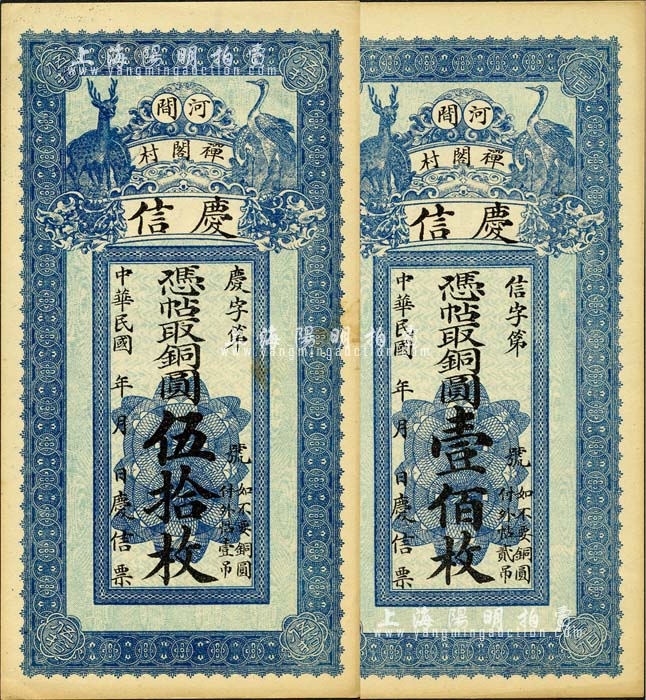 上海陽明拍賣
www.yangmingauction.com
河間
禪閣村
慶信
慶字第 號
憑帖取銅圓伍拾枚
如不要銅圓
付外帖壹吊
中華民國 年 月 日慶信票
河間
禪閣村
慶信
信字第 號
憑帖取銅圓壹佰枚
如不要銅圓
付外帖貳吊
中華民國 年 月 日慶信票
上海陽明拍賣
www.yangmingauction.com
上海陽明拍賣
www.yangmingauction.com